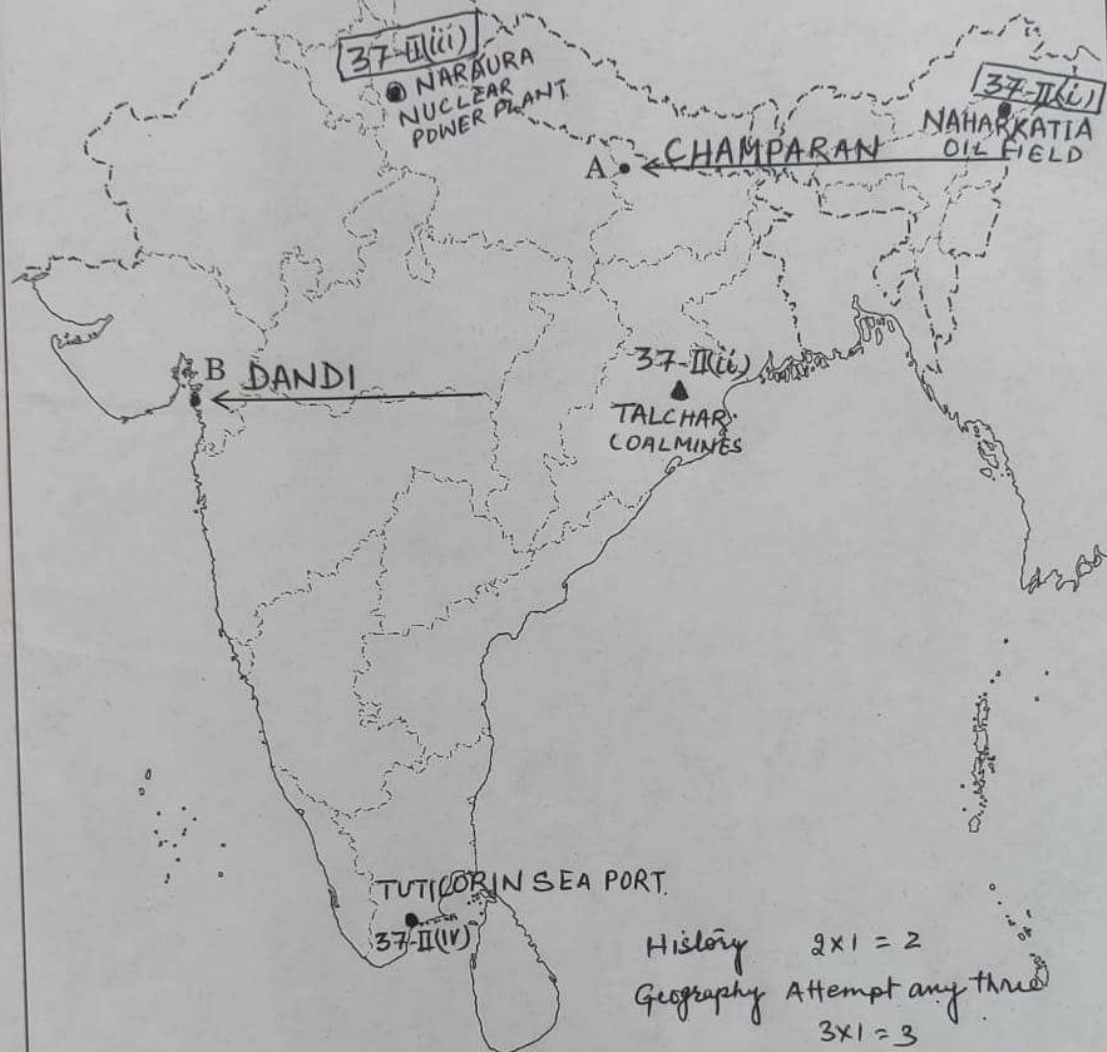 37-II(iii)
NARAURA
NUCLEAR
POWER PLANT
37-II(i)
NAHARKATIA
OIL FIELD
A CHAMPARAN
37-II(ii)
B DANDI
TALCHAR
COALMINES
TUTICORIN SEA PORT.
37-II(IV)
History 2x1 = 2
Geography Attempt any three
3x1 = 3